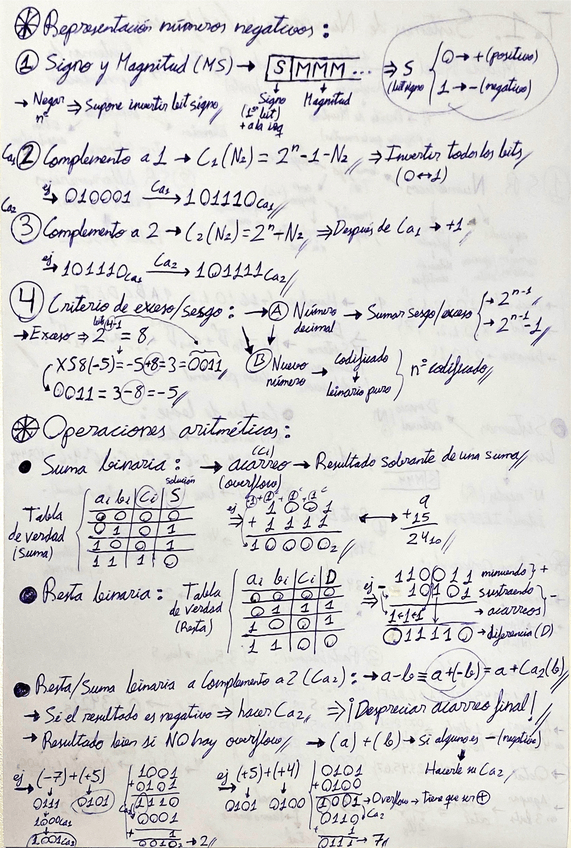 Representación números negativos:
① Signo y Magnitud (MS) → S MMM... ⇒ S (bit signo) 0 → + (positivo)
1 → - (negativo)
→ Negar nº ⇒ Supone invertir bit signo Signo (1er bit) Magnitud
Ca1 ② Complemento a 1 → C1(N2) = 2^n - 1 - N2 ⇒ Invertir todos los bits
(0↔1)
ej → 010001 Ca1→ 101110Ca1
Ca2 ③ Complemento a 2 → C2(N2) = 2^n - N2 ⇒ Después de Ca1 → +1
ej → 101110Ca1 Ca2→ 101111Ca2
④ Criterio de exceso/sesgo: → Ⓐ Número decimal → Sumar sesgo/exceso → 2^n-1
→ 2^n-1 - 1
→ Exceso → 2 = 8
XS8(-5) = -5+8 = 3 = 0011 Ⓑ Nuevo número → codificado
binario puro nº codificado
0011 = 3-8 = -5
Operaciones aritméticas:
● Suma binaria: → acarreo (Ci) → Resultado sobrante de una suma
(overflow)
Tabla de verdad (Suma)
ai bi Ci S solución
0 0 0 0
0 1 0 1
1 0 0 1
1 1 1 0
ej ⇒ 1001
+ 1111
11000 2
9
+15
24 10
● Resta binaria: Tabla de verdad (Resta)
ai bi Ci D
0 0 0 0
0 1 1 1
1 0 0 1
1 1 0 0
ej ⇒ 110011 minuendo +
- 10101 sustraendo -
1+1+1 → acarreos
011110 → diferencia (D)
● Resta/Suma binaria a Complemento a 2 (Ca2): → a-b ≡ a+(-b) = a + Ca2(b)
→ Si el resultado es negativo ⇒ hacer Ca2 ⇒ ¡Despreciar acarreo final!
→ Resultado bien si NO hay overflow → (a) + (b) → Si alguno es - (negativo)
Hacerle su Ca2
ej → (-7) + (+5)
0111 0101
1000Ca1
1001Ca2
1001
+0101
1110
0001
+ 1
0010 → 2
ej → (+5) + (+4)
0101 0100
0101
+0100
1001 → Overflow → Tiene que ser ⊕
0110 Ca2
+ 1
0111 → 7